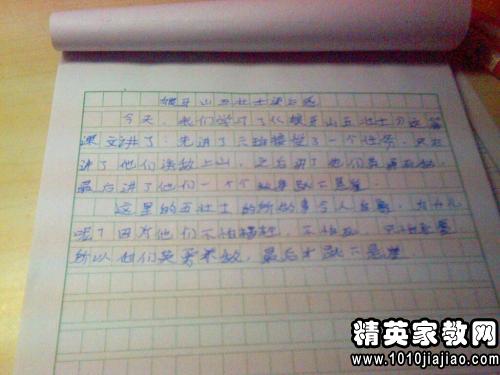 狼牙山五壮士读后感
今天,我们学习了《狼牙山五壮士》这篇
课文讲了:先讲了六班接受了一个任务,然后
讲了他们诱敌上山,之后讲了他们英勇
最后讲了他们一个个跳下悬崖.
这里的五壮士的所做事令人,为什么
呢?因为他们不怕牺牲,不怕
所以他们英勇杀敌,最后才跳下悬崖
精英家教网
www.1010jiajiao.com